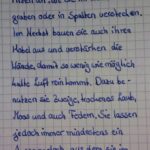 graben oder in Spalten verstecken.
Im Herbst bauen sie auch ihren
Kobel aus und verstärken die
Wände, damit so wenig wie möglich
kalte Luft reinkommt. Dazu be-
nutzen sie Zweige, trockenes Laub,
Moos und auch Federn. Sie lassen
jedoch immer mindestens ein